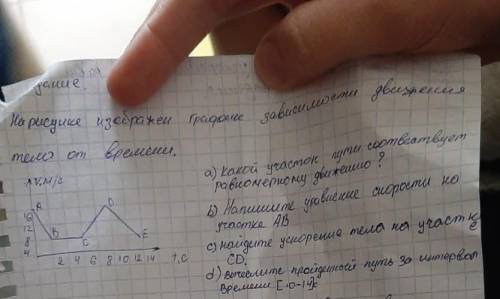 дание.
На рисунке изображен график зависимости движения
тела от времени.
а) Какой участок пути соответствует
равномерному движению?
b) Напишите уравнение скорости на
участке AB
c) найдите ускорение тела на участке
CD;
d) вычислите пройденный путь за интервал
времени [0-14]с
V, м/с
A
16
12
8
4
B
C
D
E
2 4 6 8 10 12 14 t, c